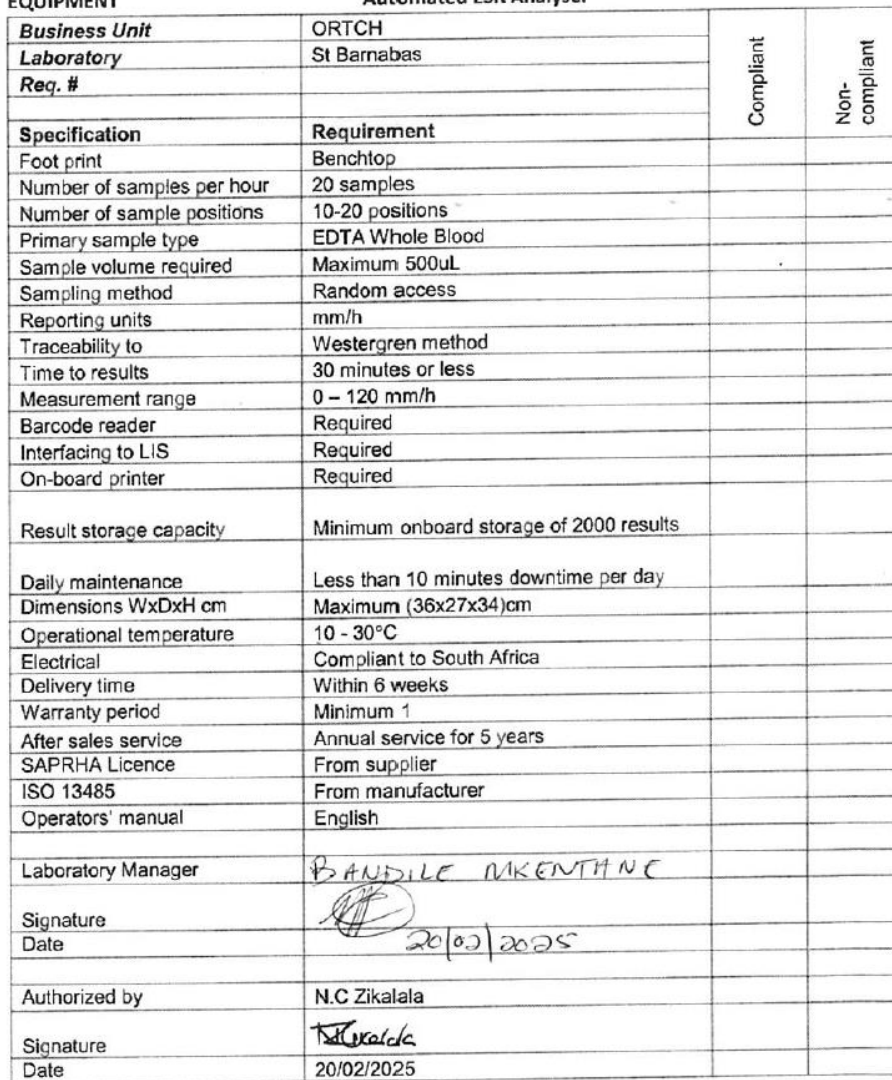 EQUIPMENT Automated ESR Analyser
Business Unit ORTCH
Laboratory St Barnabas
Req. #
Compliant
Non-compliant
Specification Requirement
Foot print Benchtop
Number of samples per hour 20 samples
Number of sample positions 10-20 positions
Primary sample type EDTA Whole Blood
Sample volume required Maximum 500uL
Sampling method Random access
Reporting units mm/h
Traceability to Westergren method
Time to results 30 minutes or less
Measurement range 0 – 120 mm/h
Barcode reader Required
Interfacing to LIS Required
On-board printer Required
Result storage capacity Minimum onboard storage of 2000 results
Daily maintenance Less than 10 minutes downtime per day
Dimensions WxDxH cm Maximum (36x27x34)cm
Operational temperature 10 - 30°C
Electrical Compliant to South Africa
Delivery time Within 6 weeks
Warranty period Minimum 1
After sales service Annual service for 5 years
SAPRHA Licence From supplier
ISO 13485 From manufacturer
Operators' manual English
Laboratory Manager BANDILE MKENTANE
Signature
Date 20/02/2025
Authorized by N.C Zikalala
Signature
Date 20/02/2025